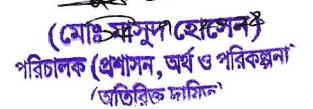 (মোঃ মাসুদ হোসেন)
পরিচালক (প্রশাসন, অর্থ ও পরিকল্পনা
(অতিরিক্ত দায়িত্ব